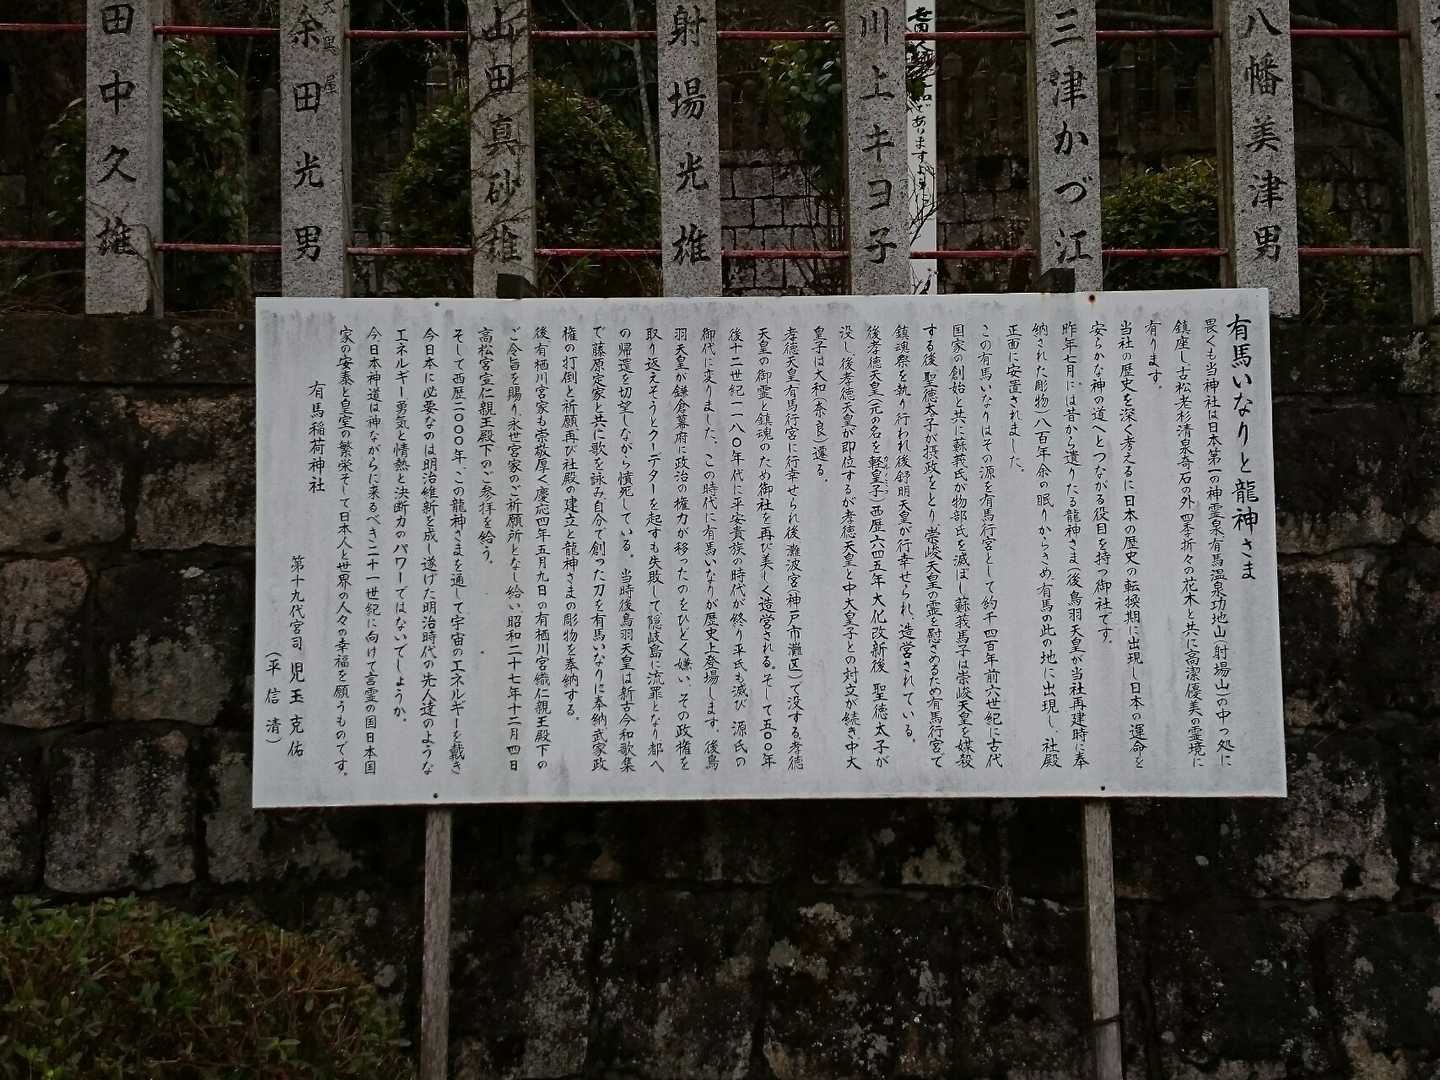 八幡美津男
三津かづ江
川上キヨ子
射場光雄
山田真砂雄
余田光男
田中久雄
有馬いなりと龍神さま
畏くも当神社は日本第一の神霊泉有馬温泉功地山(射場山)の中つ処に
鎮座し、古松老杉清泉奇石の外、四季折々の花木と共に高潔優美の霊境に
有ります。
当社の歴史を深く考えるに日本の歴史の転換期に出現し日本の運命を
安らかな神の道へとつながる役目を持つ御社です。
昨年七月には昔から遣りたる龍神さま(後鳥羽天皇が当社再建時に奉
納された彫物)八百年余の眠りからさめ、有馬の此の地に出現し、社殿
正面に安置されました。
この有馬いなりはその源を有馬行宮として約千四百年前六世紀に古代
国家の創始と共に蘇莪氏が物部氏を滅ぼし蘇莪馬子は崇峻天皇を媒殺
する後 聖徳太子が摂政をとり、崇峻天皇の霊を慰さめるため有馬行宮で
鎮魂祭を執り行われ後舒明天皇が行幸せられ、造営されている。
後孝徳天皇(元の名を軽皇子)西歴六四五年大化改新後 聖徳太子が
没し、後孝徳天皇が即位するが孝徳天皇と中大皇子との対立が続き、中大
皇子は大和(奈良)遷る。
孝徳天皇有馬行宮に行幸せられ後 灘波宮(神戸市灘区)で没する。孝徳
天皇の御霊と鎮魂のため御社を再び美しく造営される。そして五〇〇年
後十二世紀一一八〇年代に平安貴族の時代が終り平氏も滅び 源氏の
御代に変りました、この時代に有馬いなりが歴史上登場します。後鳥
羽天皇が鎌倉幕府に政治の権力が移ったのをひどく嫌い、その政権を
取り返えそうとクーデターを起すも失敗して隠岐島に流罪となり都へ
の帰還を切望しながら憤死している。当時後鳥羽天皇は新古今和歌集
で藤原定家と共に歌を詠み、自分で創った刀を有馬いなりに奉納武家政
権の打倒と祈願再び社殿の建立と龍神さまの彫物を奉納する。
後有栖川宮家も崇敬厚く慶応四年五月九日の有栖川宮織仁親王殿下の
ご令旨を賜り、永世宮家のご祈願所となし給い、昭和二十七年十二月四日
高松宮宣仁親王殿下のご参拝を給う。
そして西歴二〇〇〇年、この龍神さまを通して宇宙のエネルギーを戴き
今日本に必要なのは明治維新を成し遂げた明治時代の先人達のような
エネルギー勇気と情熱と決断力のパワーではないでしょうか。
今日本神道は神ながらに来るべき二十一世紀に向けて言霊の国日本国
家の安泰と皇室の繁栄そして日本人と世界の人々の幸福を願うものです。
有馬稲荷神社
第十九代宮司 児玉克佑
(平信清)